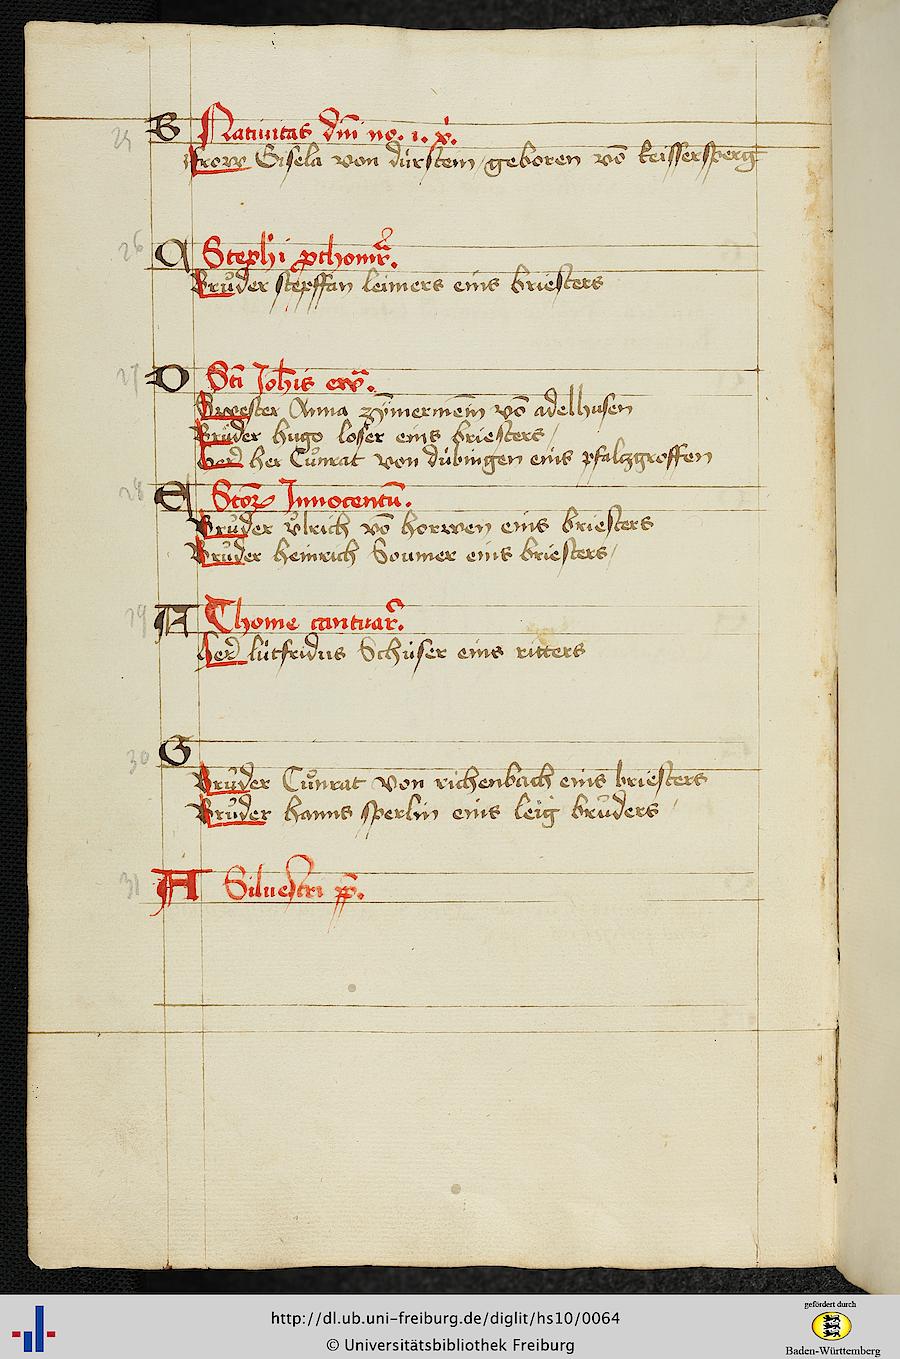 25 B Natiuitas dm̄ no. i. x̄.
Frow Gisela von dúrstein / geboren vō keissersperg
26 C Steph'i pthom̄r.
Brůder steffan leimers eins briesters
27 D Scī Joh̄is ew̄.
Swester Anna zÿmermenin vō adelhusen
Brůder hugo loser eins briesters /
her her Cůnrat von dúbingen eins pfalczgroffen
28 E Sctoꝝ Innocentū.
Brůder ůlrich vō horwen eins briesters
Brůder heinrich Soumer eins briesters /
29 Thome cantuar.
her lútfridus Schúser eins ritters
30 G
Brůder Cůnrat von richenbach eins briesters
Brůder hanns sperlin eins leig brůders /
31 A Siluestri pp̄.
http://dl.ub.uni-freiburg.de/diglit/hs10/0064
© Universitätsbibliothek Freiburg
gefördert durch
Baden-Württemberg